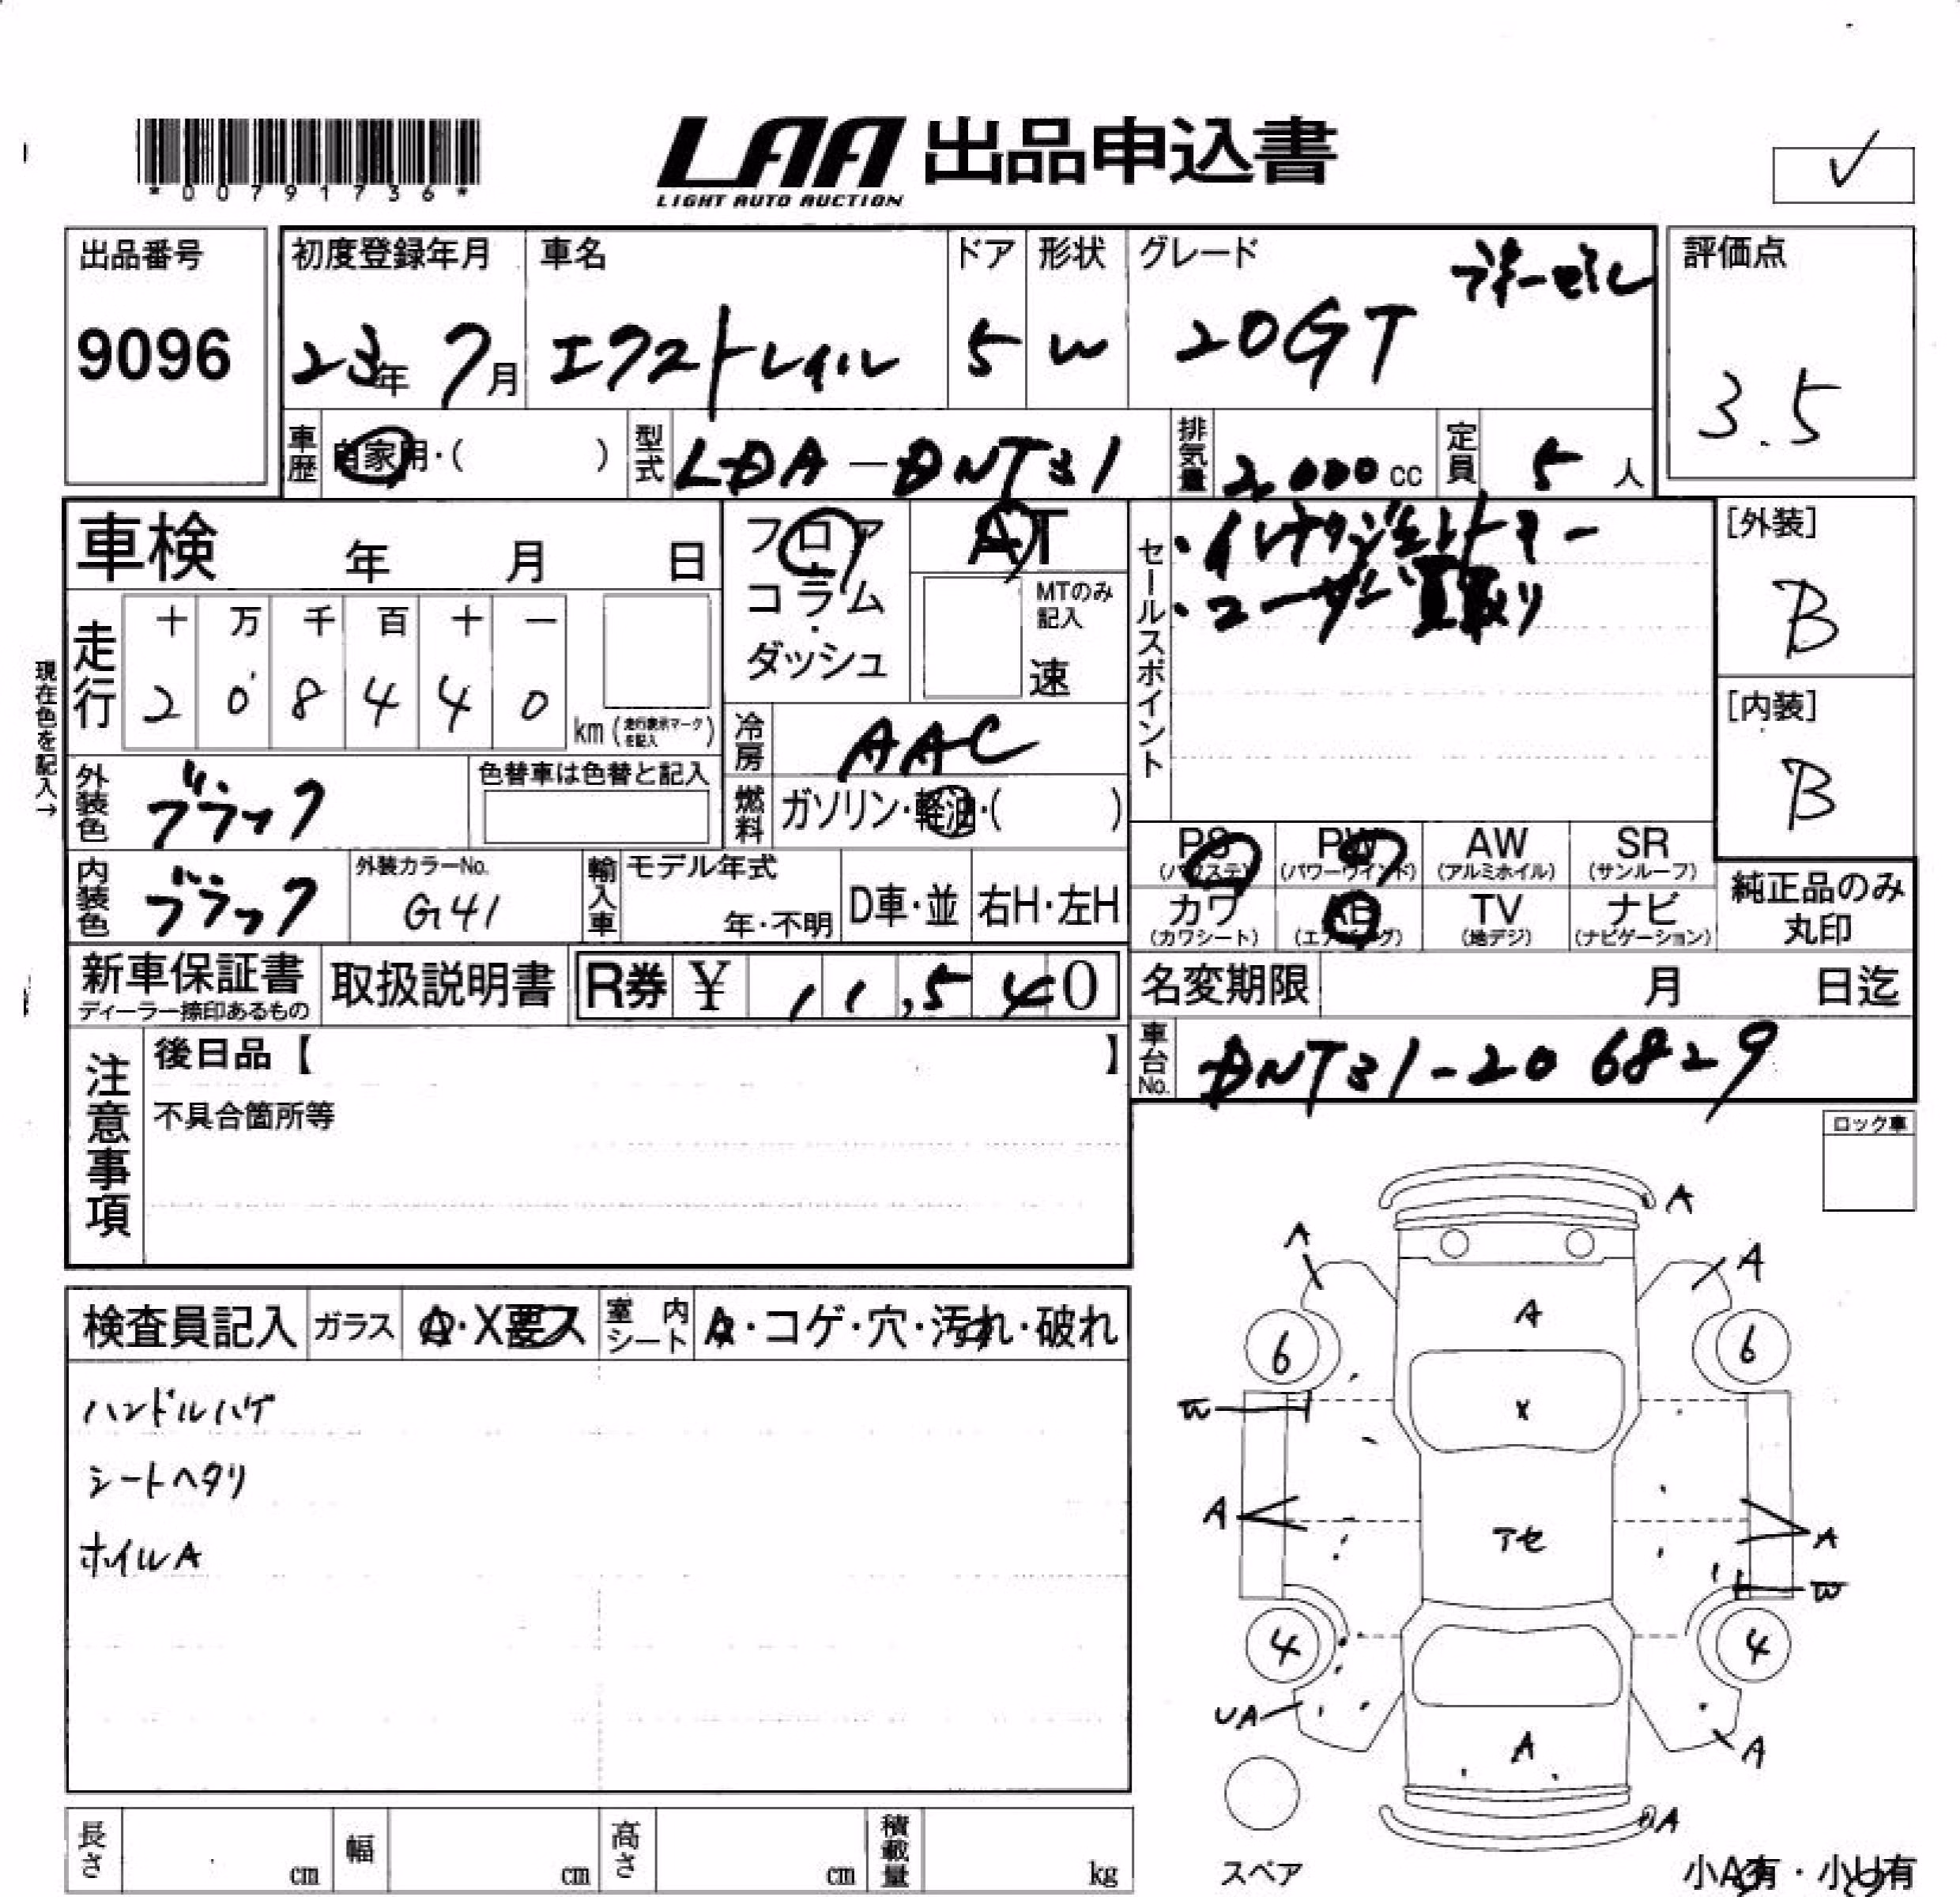 *00791736*
LAA 出品申込書
LIGHT AUTO AUCTION
✓
出品番号
9096
初度登録年月
23年 7月
車名
エクストレイル
ドア
5
形状
W
グレード
20GT ディーゼル
評価点
3.5
車歴 自家用・( )
型式 LDA-DNT31
排気量 2,000cc
定員 5人
車検 年 月 日
フロア
コラム
・
ダッシュ
AT
MTのみ
記入
速
セールスポイント
・イモビ
・ユーザー買取り
[外装]
B
[内装]
B
現在色を記入→
走行
十 万 千 百 十 一
2 0 8 4 4 0
km (走行表示マークを記入)
冷房 AAC
燃料 ガソリン・軽油・( )
外装色 ブラック
色替車は色替と記入
内装色 ブラック
外装カラーNo.
G41
輸入車
モデル年式
年・不明
D車・並
右H・左H
PS
(パワステ)
PW
(パワーウインド)
AW
(アルミホイル)
SR
(サンルーフ)
カワ
(カワシート)
AB
(エアバッグ)
TV
(地デジ)
ナビ
(ナビゲーション)
純正品のみ
丸印
新車保証書
ディーラー捺印あるもの
取扱説明書
R券 ¥ 11,540
名変期限 月 日迄
車台No. DNT31-206829
注意事項
後日品【 】
不具合箇所等
ロック車
検査員記入
ガラス A・X要ス
室内シート A・コゲ・穴・汚れ・破れ
ハンドルハゲ
シートヘタリ
ホイルA
A
A
A
A
6
6
X
W
A
アセ
A
W
4
4
UA
A
A
A
スペア
小A有・小U有
長さ cm
幅 cm
高さ cm
積載量 kg